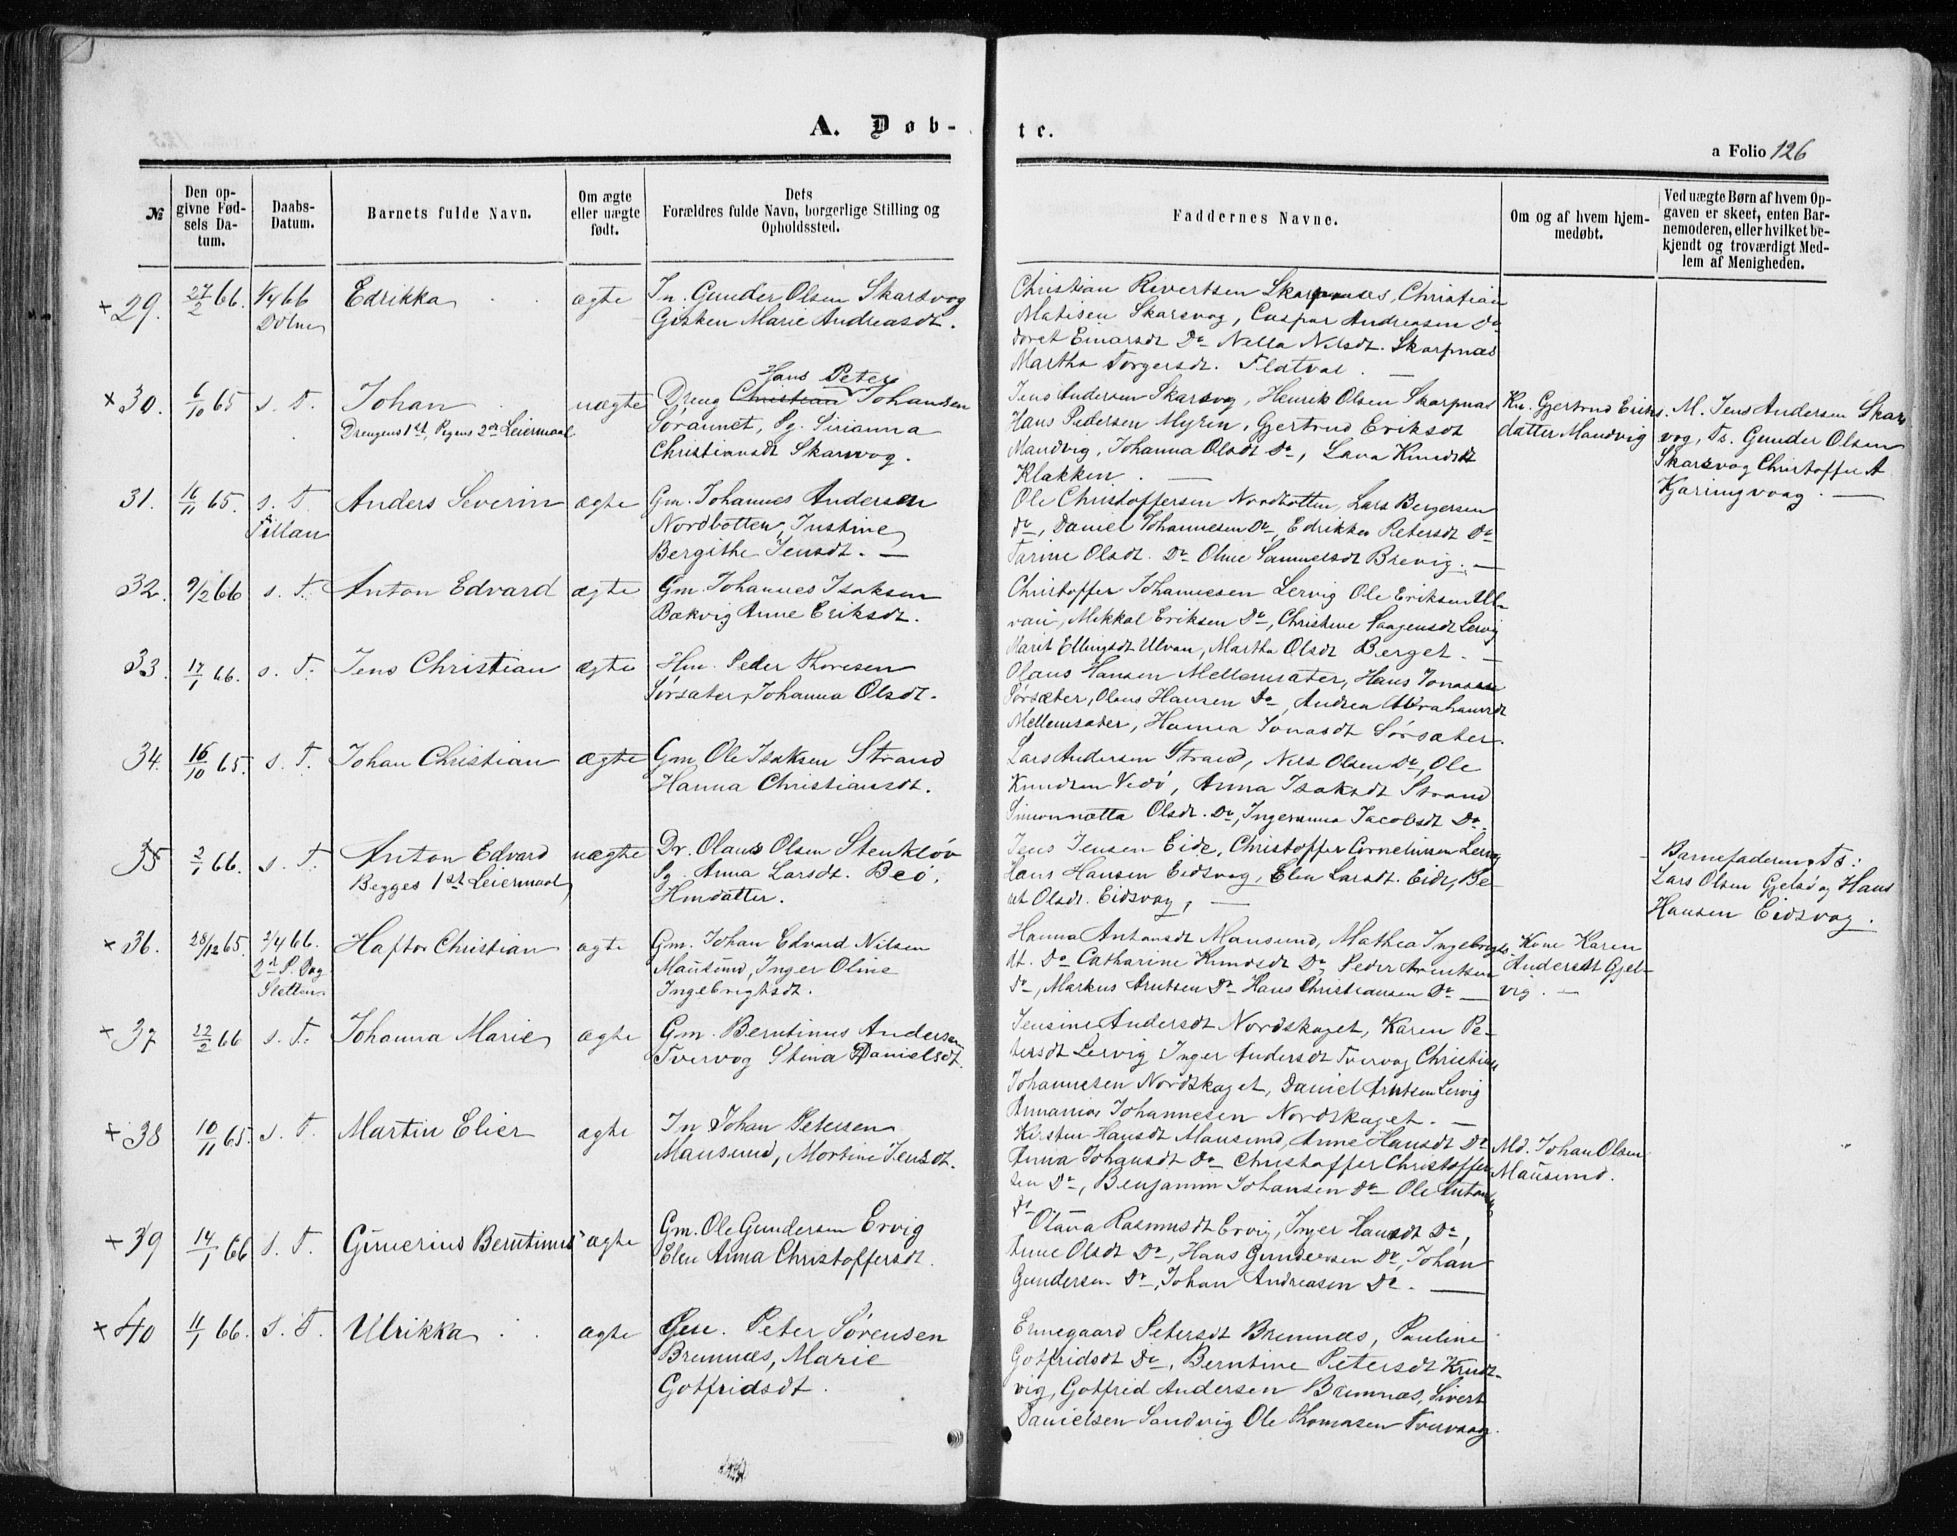 A. Døb-
te.
a Folio 126
№
Den op-
givne Fød-
sels Da-
tum.
Daabs-
Datum.
Barnets fulde Navn.
Om ægte
eller uægte
født.
Dets
Forældres fulde Navn, borgerlige Stilling og
Opholdssted.
Faddernes Navne.
Om og af hvem hjem-
medøbt.
Ved uægte Børn af hvem Op-
gaven er skeet, enten Bar-
nemoderen, eller hvilket be-
kjendt og troværdigt Med-
lem af Menigheden.
+ 29. 27/2 66. 1/4 66
Dolm
Edrikka
ægte
In. Gunder Olsen Skarsvog
Gisken Marie Andreasdt.
Christian Rivertsen Skarpnæs, Christian
Matisen Skarsvog, Caspar Andreasen Do
Doret Einarsdt Do Nella Nilsdt. Skarpnæs
Martha Torgersdt. Flatval.
× 30. 6/10 65 s. T.
Johan
Drengens 1st, Pigens 2den Leiermaal
uægte
Hans Peter
Dreng Christian Johansen
Søvannet, Pg. Sirianna
Christiansdt Skarsvog.
Jens Andersen Skarsvog, Henrik Olsen Skarpnæs
Hans Pedersen Myren, Gjertrud Eriksdt
Mandvig, Johanna Olsdt Do, Lava Knudsdt
Klakken.
Kn. Gjertrud Eriks
datter Mandvig
M. Jens Andersen Skars
vog, Ts. Gunder Olsen
Skarsvog Christoffer A
Kjæringvaag.
31. 16/11 65. s. T.
Tillan
Anders Severin
ægte
Gm. Johannes Andersen
Nordbotten, Justine
Bergithe Jensdt.
Ole Christoffersen Nordbotten, Lars Bergersen
do, Daniel Johannesen Do, Edrikka Petersdt Do
Tarine Olsdt. Do Oline Samuelsdt Brevig.
32. 9/2 66 s. T.
Anton Edvard
ægte
Gm. Johannes Isaksen
Bækvig Anne Eriksdt.
Christoffer Johannesen Lervig Ole Eriksen Ul-
van, Mikkal Eriksen Do, Christine Paagensdt Lervig
Marit Ellingsdt Ulvan, Martha Olsdt Berget.
33. 17/1 66. s. T.
Jens Christian
ægte
Hm. Peder Thoresen
Sørsæter, Johanna Olsdt.
Olaus Hansen Mellemsæter, Hans Jonassen
Sørsæter, Olaus Hansen Do Andrea Abrahamsdt
Mellemsæter, Hanna Jonasdt Sørsæter.
34. 16/10 65. s. T.
Johan Christian
ægte
Gm. Ole Isaksen Strand
Hanna Christiansdt.
Lars Andersen Strand, Nils Olsen Do, Ole
Knudsen Vedø, Anna Isaksdt Strand
Simonnetta Olsdt. Do, Ingeranna Jacobsdt Do.
35 2/1 66. s. T.
Anton Edvard
Begges 1st Leiermaal
uægte
Dr. Olaus Olsen Stenkløv
Pg. Anna Larsdt. Beö,
Hmdatter.
Jens Jensen Eide, Christoffer Corneliusen Lervig
Hans Hansen Eidsvog, Elen Larsdt. Eide, Be-
ret Olsdt. Eidsvog,
Barnefaderen, Ts:
Lars Olsen Gjelsø og Hans
Hansen Eidsvog.
× 36. 28/12 65. 2/4 66.
2n P. Dag
Sletten.
Haftor Christian
ægte
Gm. Johan Edvard Nilsen
Mausund, Inger Oline
Ingebrigtsdt.
Hanna Antonsdt Mausund, Mathea Ingebrigts-
dt. Do Catharine Knudsdt Do, Peder Arentsen
do, Markus Arntsen Do Hans Christiansen Do
Kone Karen
Andersdt Gjel-
vig.
× 37 22/2 66 s. T.
Johanna Marie
ægte
Gm. Berntinus Andersen
Tvervog Stina Danielsdt.
Jensine Andersdt Nordskaget, Karen Pe-
tersdt Lervig Inger Andersdt Tvervog Christian
Johannesen Nordskaget, Daniel Arntsen Lervig
Annanias Johannesen Nordskaget.
+ 38 10/11 65. s. T.
Martin Elier
ægte
In Johan Petersen
Mausund, Mortine Jensdt.
Kirsten Hansdt Mausund, Anne Hansdt Do
Anna Johansdt Do Christoffer Christoffer-
sen Do, Benjamin Johansen Do Ole Antons
do
Md. Johan Olsen
Mausund.
+ 39 14/1 66 s. T.
Gunerius Berntinus
ægte
Gm. Ole Gundersen Ervig
Elen Anna Christoffersdt.
Olava Rasmusdt Ervig, Inger Hansdt Do,
Anne Olsdt Do, Hans Gundersen Do, Johan
Gundersen Do, Johan Andreasen Do.
× 40 11/1 66. s. T.
Ulrikka
ægte
Peter Sørensen
Bremnæs, Marie
Gotfridsdt.
Ennegaard Petersdt Bremnæs, Pauline
Gotfridsdt Do, Berntine Petersdt Knudt-
vig, Gotfred Andersen Bremnæs, Sivert
Danielsen Sandvig Ole Thomasen Tvervaag.